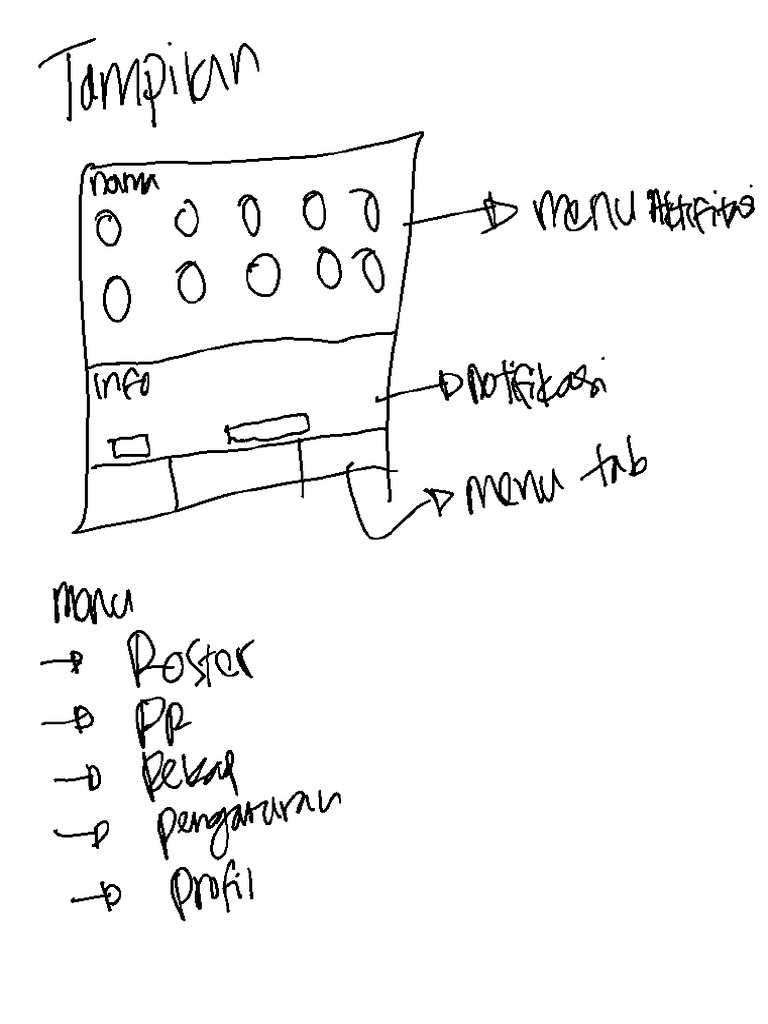 Tampilan
nama
menu Aktifitas
info
notifikasi
menu tab
menu
Roster
PR
Rekap
pengaturan
profil